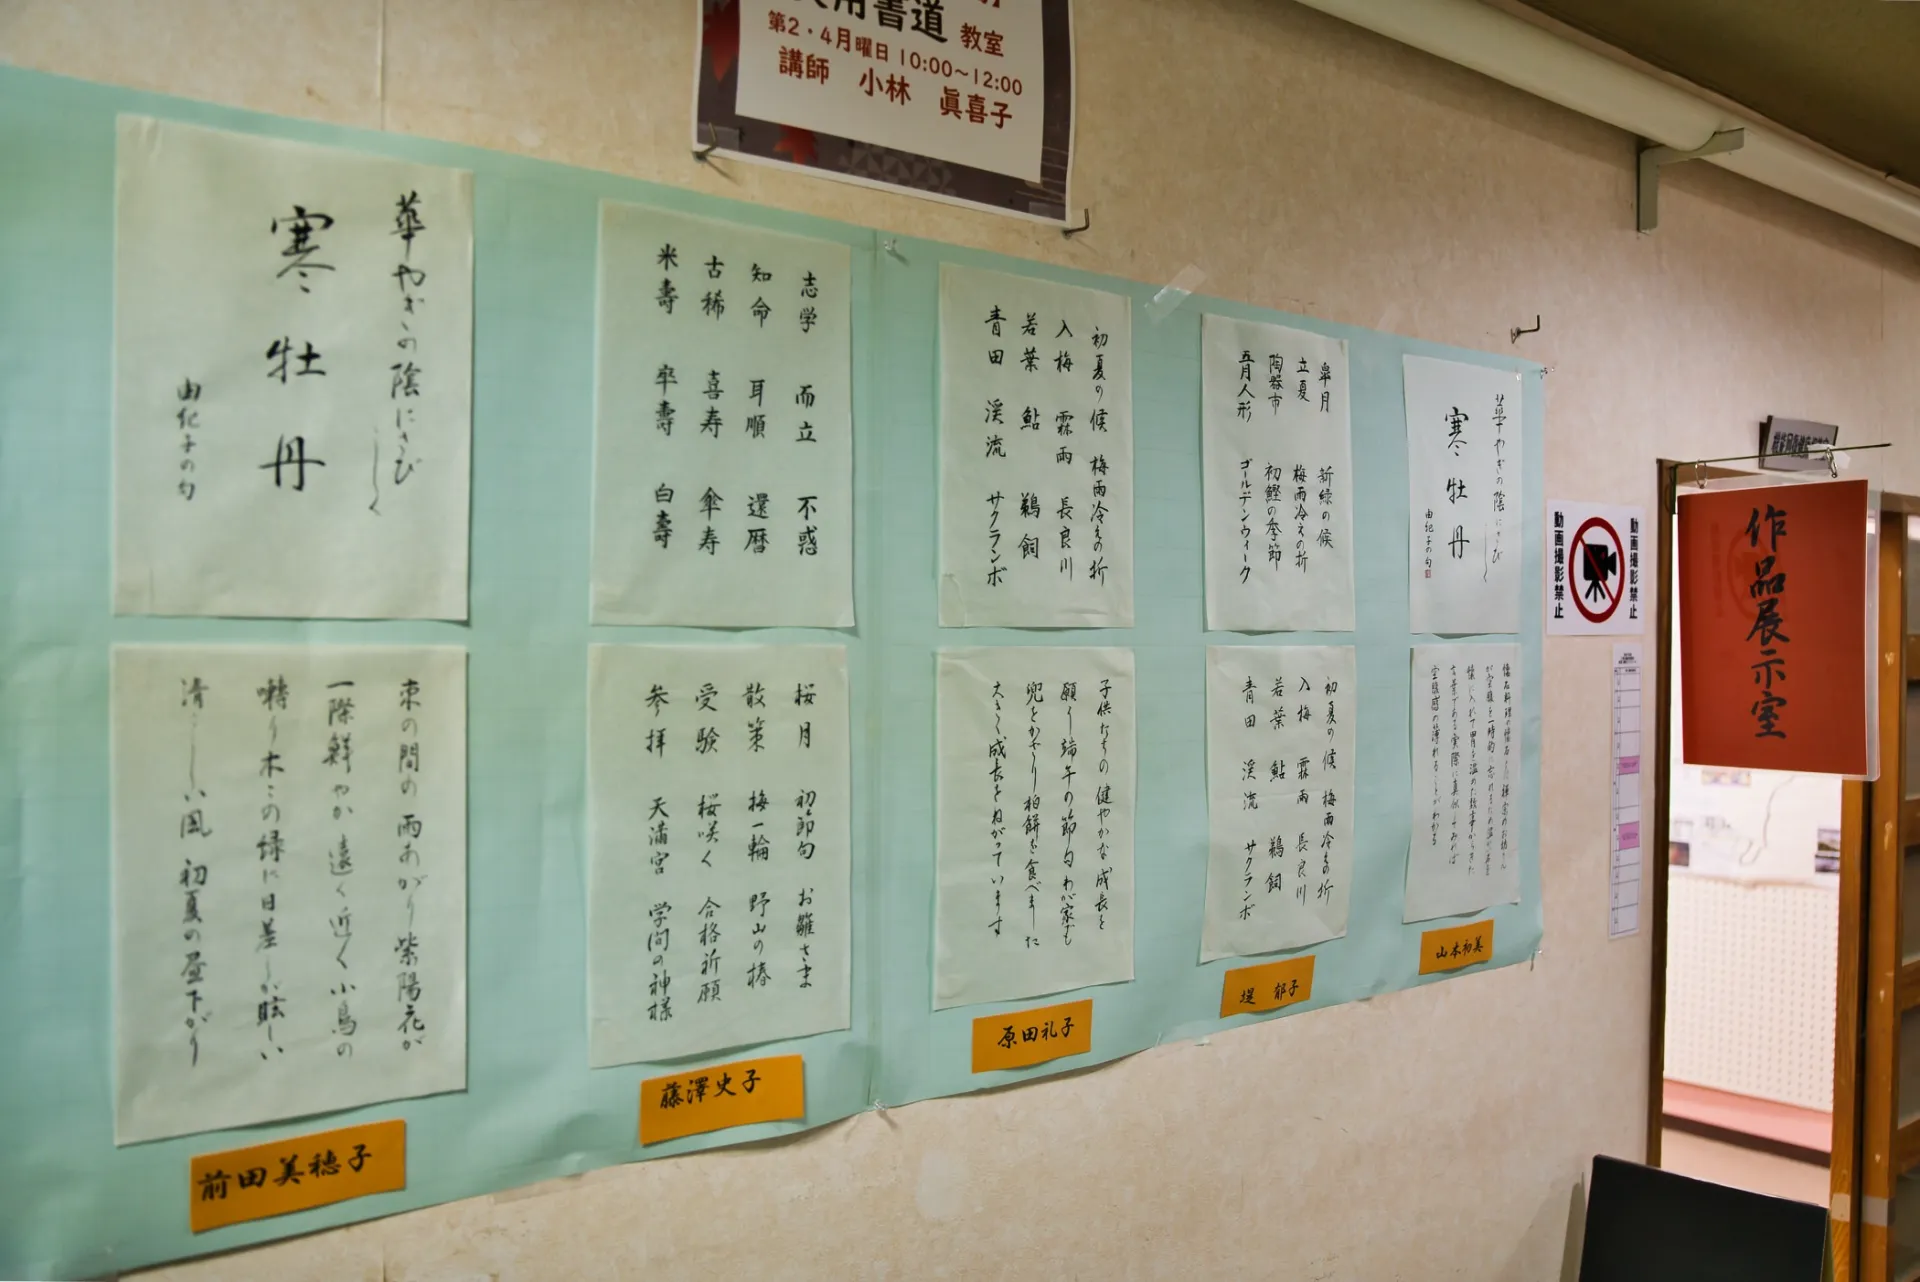 書道 教室
第2・4月曜日 10:00～12:00
講師 小林 眞喜子
華やぎの陰にさびしく
寒牡丹
由紀子の句
束の間の雨あがり紫陽花が
一際鮮やか遠く近く小鳥の
囀り木々の緑に日差しが眩しい
清々しい風 初夏の昼下がり
前田美穂子
志学 而立 不惑
知命 耳順 還暦
古稀 喜寿 傘寿
米壽 卒壽 白壽
桜月 初節句 お雛さま
散策 梅一輪 野山の椿
受験 桜咲く 合格祈願
参拝 天満宮 学問の神様
藤澤史子
初夏の候 梅雨冷えの折
入梅 霖雨 長良川
若葉 鮎 鵜飼
青田 渓流 サクランボ
子供たちの健やかな成長を
願う端午の節句わが家も
兜をかざり柏餅を食べました
大きく成長をねがっています
原田礼子
皐月 新緑の候
立夏 梅雨冷えの折
陶器市 初鰹の季節
五月人形 ゴールデンウィーク
初夏の候 梅雨冷えの折
入梅 霖雨 長良川
若葉 鮎 鵜飼
青田 渓流 サクランボ
堤 郁子
華やぎの陰にさびしく
寒牡丹
由紀子の句
山本初美
動画撮影禁止
動画撮影禁止
作品展示室